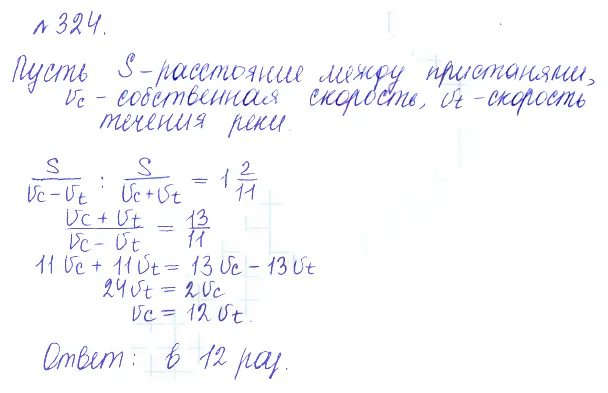 №324.
Пусть S - расстояние между пристанями,
Vc - собственная скорость, Vt - скорость
течения реки.
S/(Vc - Vt) : S/(Vc + Vt) = 1 2/11
(Vc + Vt)/(Vc - Vt) = 13/11
11Vc + 11Vt = 13Vc - 13Vt
24Vt = 2Vc
Vc = 12Vt.
Ответ: в 12 раз.